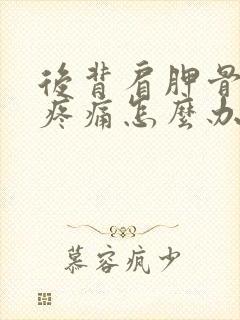 後背肩胛骨
疼痛怎麼办
慕容疯少